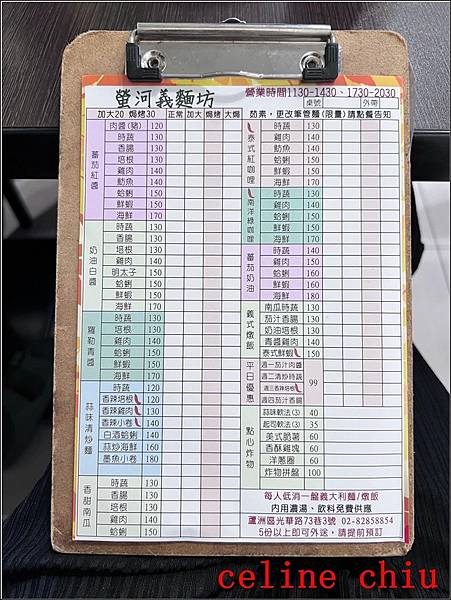 螢河義麵坊
營業時間1130-1430、1730-2030
桌號 外帶
加大20 焗烤30 正常 加大 焗烤 大焗
蕃茄紅醬
肉醬(豬) 120
時蔬 130
香腸 130
培根 130
雞肉 140
魴魚 140
蛤蜊 150
鮮蝦 150
海鮮 170
奶油白醬
時蔬 130
香腸 130
培根 130
雞肉 140
明太子 150
蛤蜊 150
鮮蝦 150
海鮮 170
羅勒青醬
時蔬 130
培根 130
雞肉 140
蛤蜊 150
鮮蝦 150
海鮮 170
蒜味清炒麵
時蔬 120
香辣培根 120
香辣雞肉 130
香辣小卷 140
白酒蛤蜊 140
蒜炒海鮮 160
墨魚小卷 180
香甜南瓜
時蔬 130
香腸 130
培根 130
雞肉 140
蛤蜊 150
茹素,更改筆管麵(限量)請點餐告知
泰式紅咖哩
時蔬 130
雞肉 140
魴魚 140
蛤蜊 150
鮮蝦 150
海鮮 170
南洋綠咖哩
時蔬 130
雞肉 140
蛤蜊 150
鮮蝦 150
海鮮 170
蕃茄奶油
雞肉 150
蛤蜊 160
鮮蝦 160
海鮮 180
義式燉飯
南瓜時蔬 130
茄汁香腸 130
奶油培根 130
青醬雞肉 140
泰式鮮蝦 150
平日優惠
週一茄汁肉醬
週二清炒時蔬
週三香辣培根
週四茄汁香腸
99
點心炸物
蒜味軟法(3) 40
起司軟法(3) 35
美式脆薯 60
香酥雞塊 60
洋蔥圈 60
炸物拼盤 100
每人低消一盤義大利麵/燉飯
內用濃湯、飲料免費供應
蘆洲區光華路73巷3號 02-82858854
5份以上即可外送,請提前預訂
celine chiu